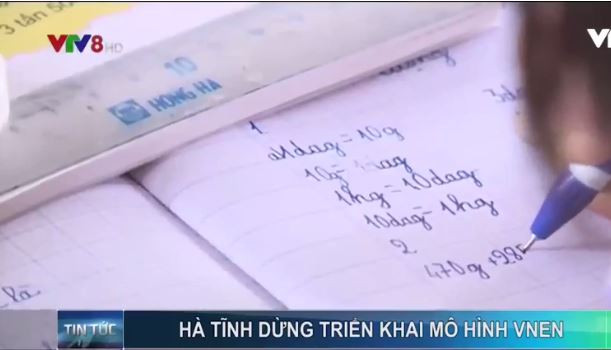 3 tấn 50
VTV8 HD
VT
10
HONG HA
1
a1dag = 10g
10g = 1dag
1hg = 10dag
10dag = 1hg
2
470g + 285
TIN TỨC
HÀ TĨNH DỪNG TRIỂN KHAI MÔ HÌNH VNEN